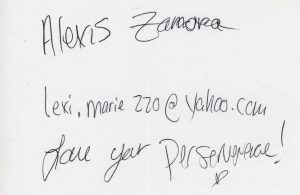 Alexis Zamora
lexi.marie220@yahoo.com
Love your Perserverance!